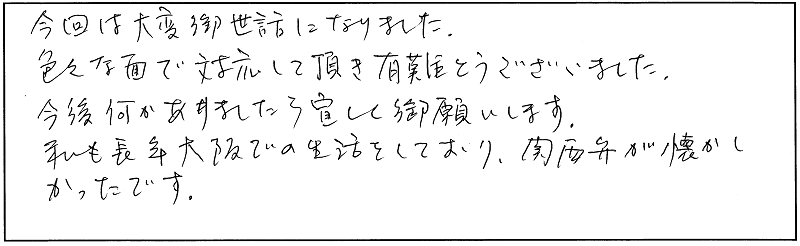 今回は大変御世話になりました.
色々な面で対応して頂き有難とうございました.
今後何かありましたら宜しく御願いします.
私も長年大阪での生活をしており、関西弁が懐かし
かったです.